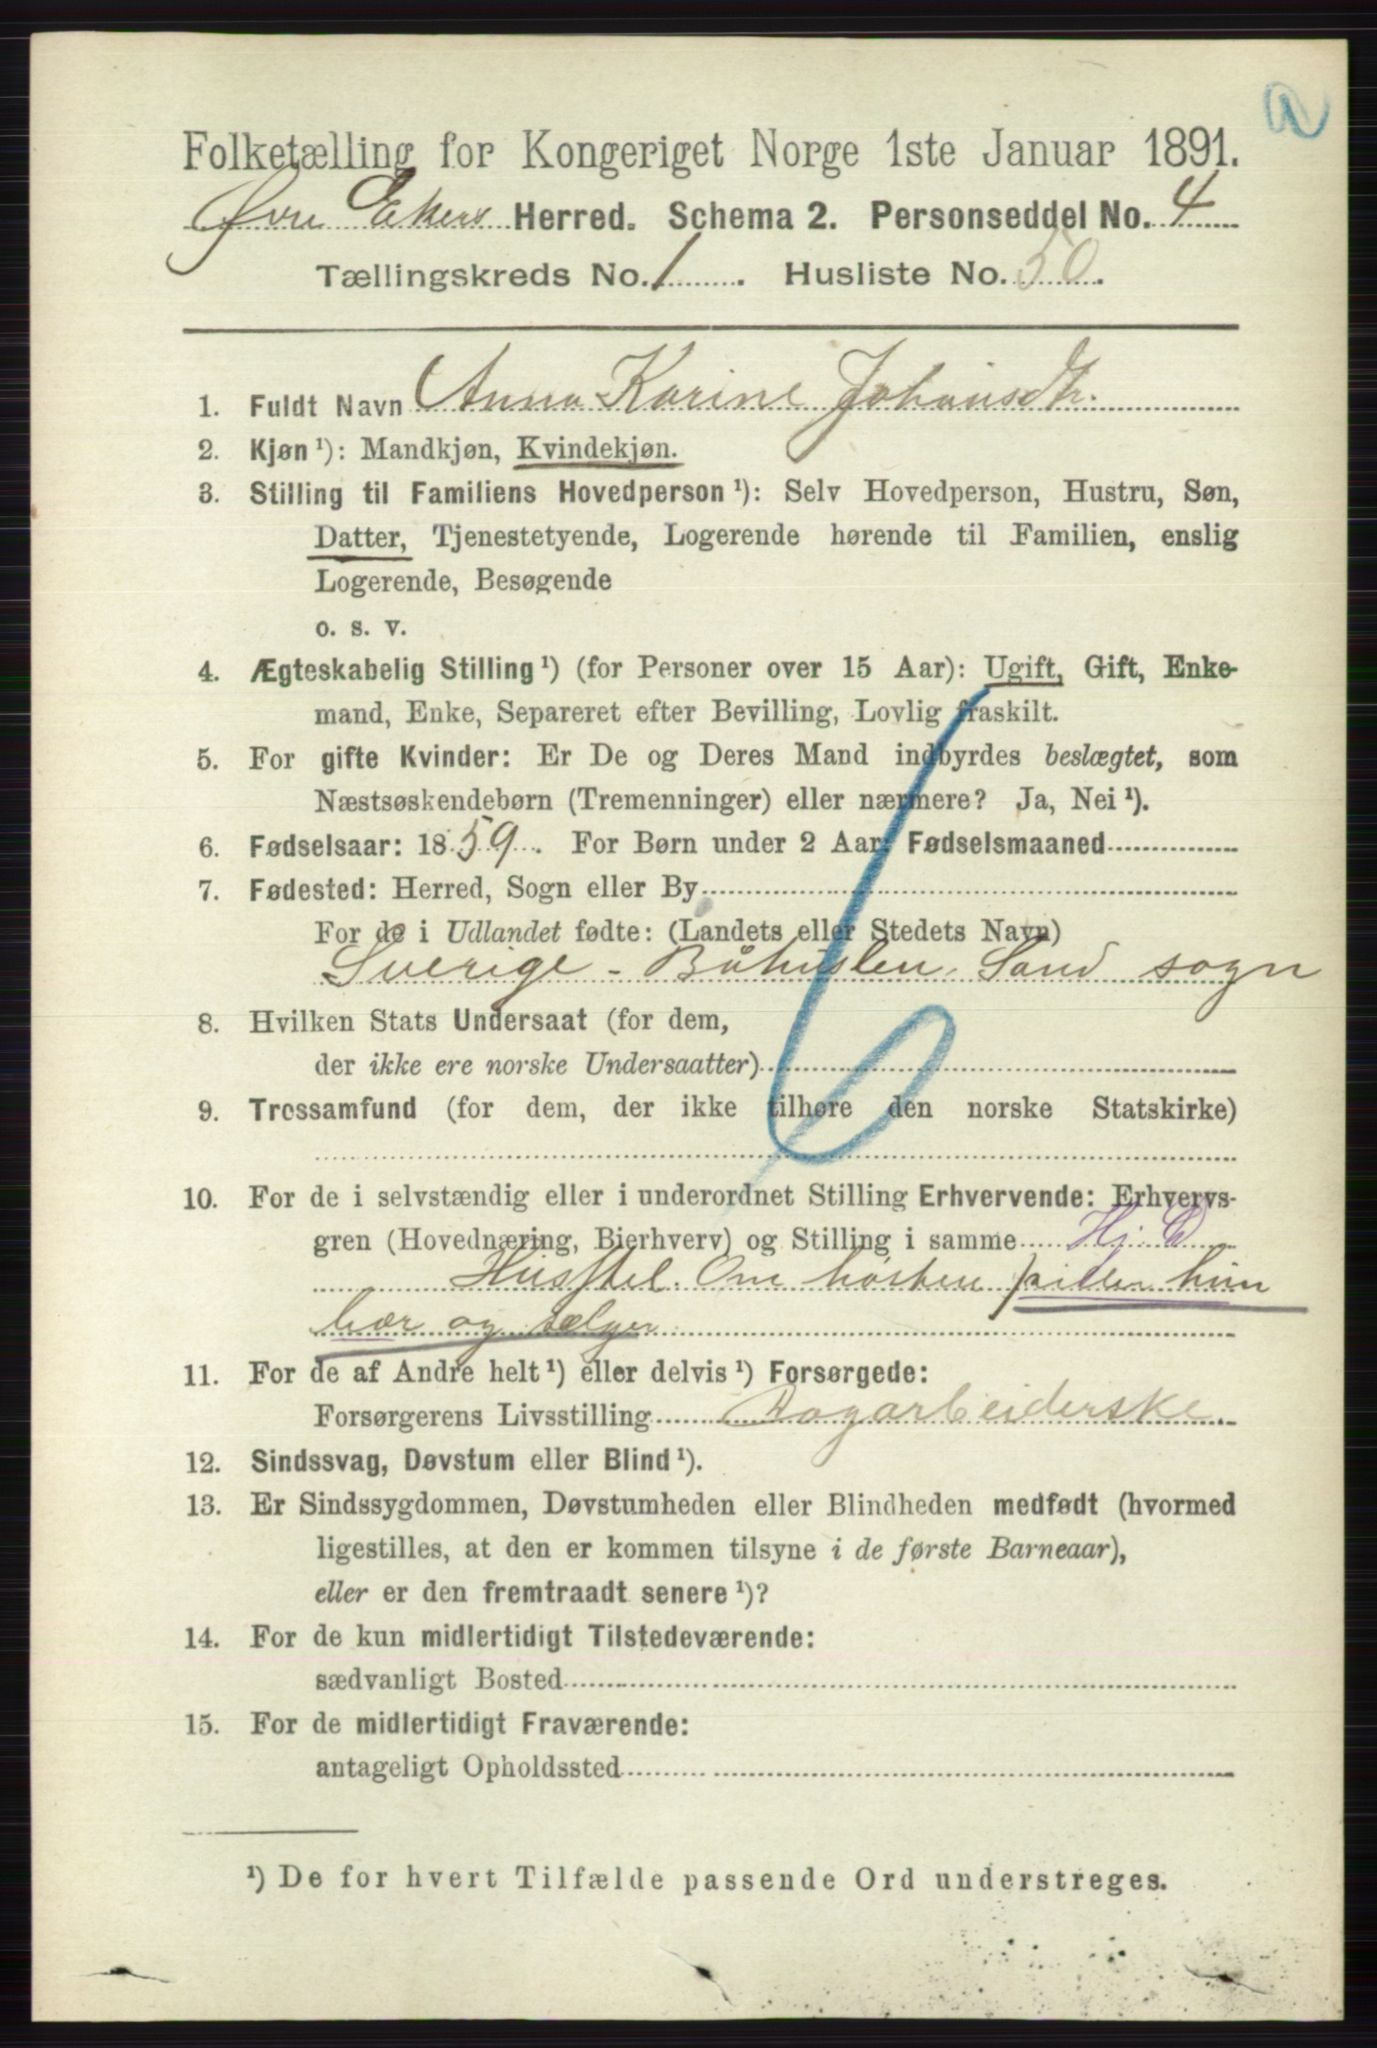 Folketælling for Kongeriget Norge 1ste Januar 1891.
Øvre Ekers Herred. Schema 2. Personseddel No. 4
Tællingskreds No. 1. Husliste No. 50.
1. Fuldt Navn Anna Karine Johansdtr.
2. Kjøn ¹): Mandkjøn, Kvindekjøn.
3. Stilling til Familiens Hovedperson ¹): Selv Hovedperson, Hustru, Søn,
Datter, Tjenestetyende, Logerende hørende til Familien, enslig
Logerende, Besøgende
o. s. v.
4. Ægteskabelig Stilling ¹) (for Personer over 15 Aar): Ugift, Gift, Enke-
mand, Enke, Separeret efter Bevilling, Lovlig fraskilt.
5. For gifte Kvinder: Er De og Deres Mand indbyrdes beslægtet, som
Næstsøskendebørn (Tremenninger) eller nærmere? Ja, Nei ¹).
6. Fødselsaar: 1859. For Børn under 2 Aar: Fødselsmaaned
7. Fødested: Herred, Sogn eller By
For de i Udlandet fødte: (Landets eller Stedets Navn)
Sverige - Båhuslen. Sand sogn
8. Hvilken Stats Undersaat (for dem,
der ikke ere norske Undersaatter)
9. Trossamfund (for dem, der ikke tilhøre den norske Statskirke)
10. For de i selvstændig eller i underordnet Stilling Erhvervende: Erhvervs-
gren (Hovednæring, Bierhverv) og Stilling i samme Hj. D
Husstel. Om høsten piller hun
bær og sælger
11. For de af Andre helt ¹) eller delvis ¹) Forsørgede:
Forsørgerens Livsstilling Dagarbeiderske.
12. Sindssvag, Døvstum eller Blind ¹).
13. Er Sindssygdommen, Døvstumheden eller Blindheden medfødt (hvormed
ligestilles, at den er kommen tilsyne i de første Barneaar),
eller er den fremtraadt senere ¹)?
14. For de kun midlertidigt Tilstedeværende:
sædvanligt Bosted
15. For de midlertidigt Fraværende:
antageligt Opholdssted
¹) De for hvert Tilfælde passende Ord understreges.